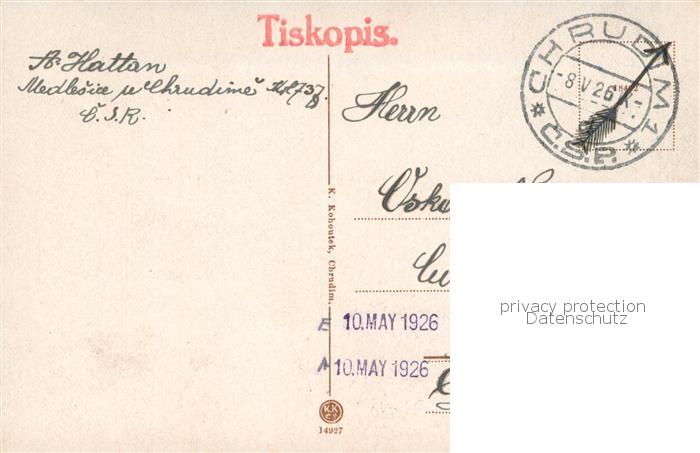 Tiskopis.
A. Hattan
Medlešice u Chrudimě
Č.S.R.
CHRUDIM 1
-8 V 26
Č.S.P.
Herrn
K. Kohoutek, Chrudim.
E 10. MAY 1926
A 10. MAY 1926
K.K.
14927
privacy protection
Datenschutz